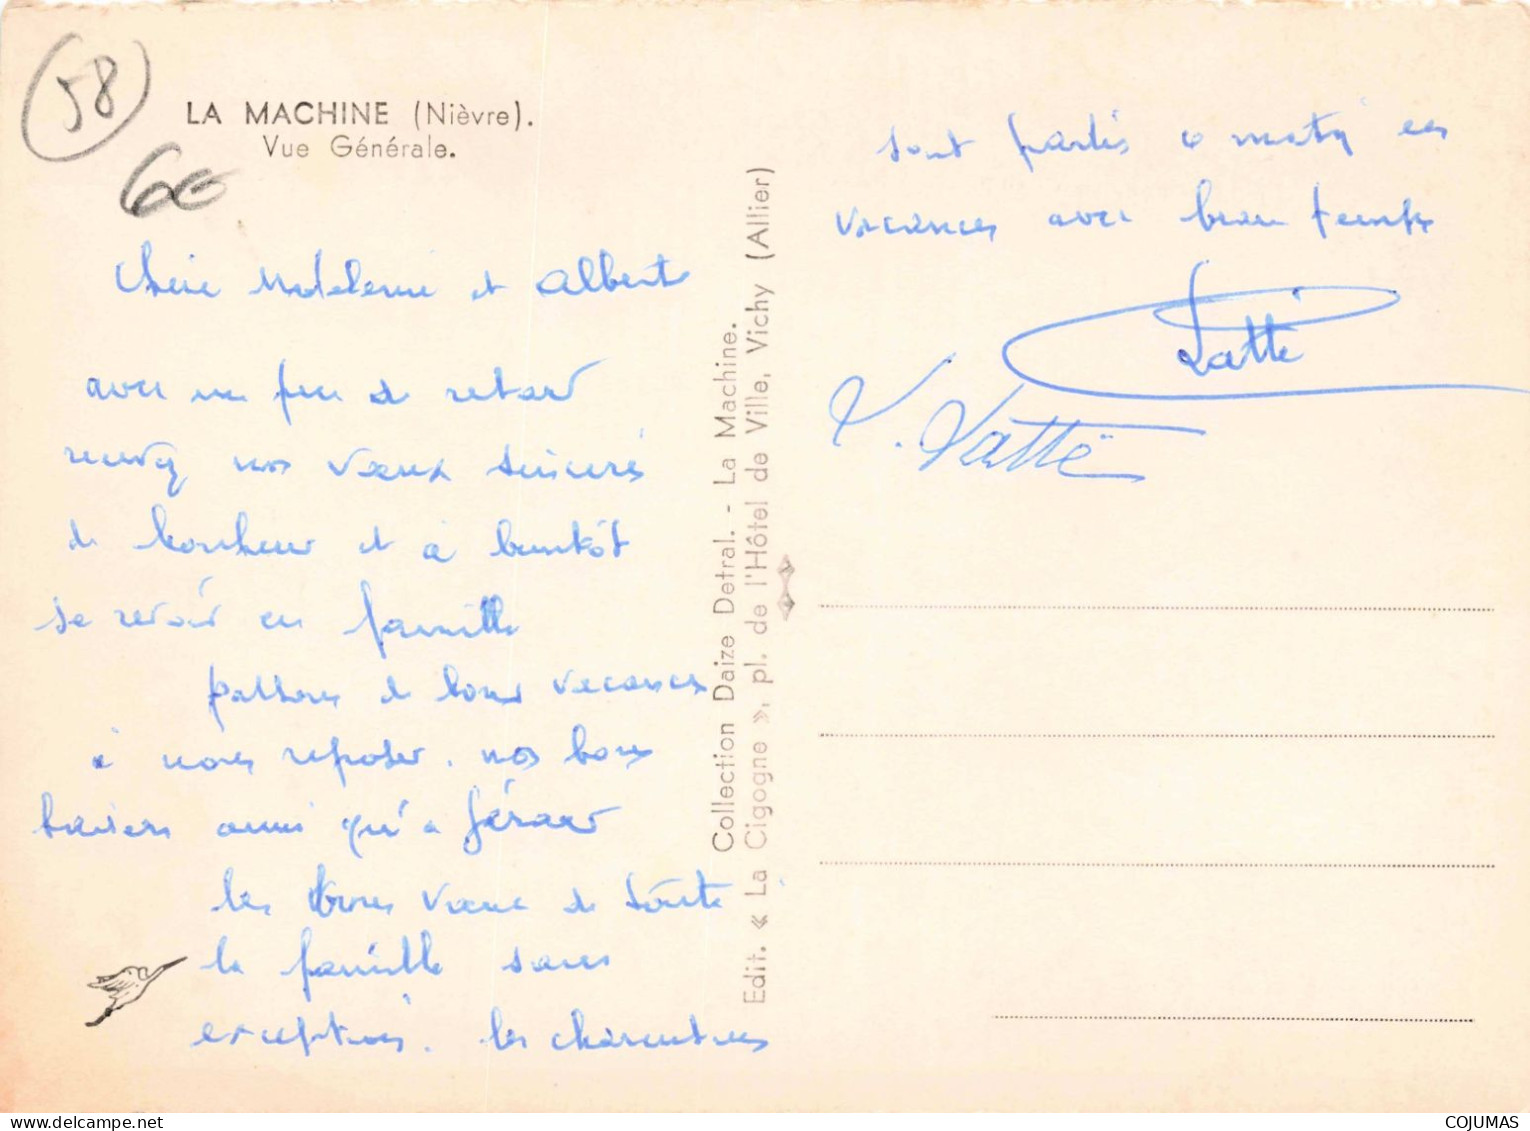 58
LA MACHINE (Nièvre).
Vue Générale.
6€
Chère Madeleine et Albert
avec un peu de retard
recevez nos vœux sincères
de bonheur et à bientôt
se revoir en famille
passons de bonnes vacances
à nous reposer. nos bons
baisers ainsi qu'à Gérard
les bons vœux de toute
la famille sans
exceptions. les charentais
sont partis ce matin en
vacances avec beau temps
Latte
V. Latte
Collection Daize Detral. - La Machine.
Edit. « La Cigogne », pl. de l'Hôtel de Ville, Vichy (Allier)
COJUMAS